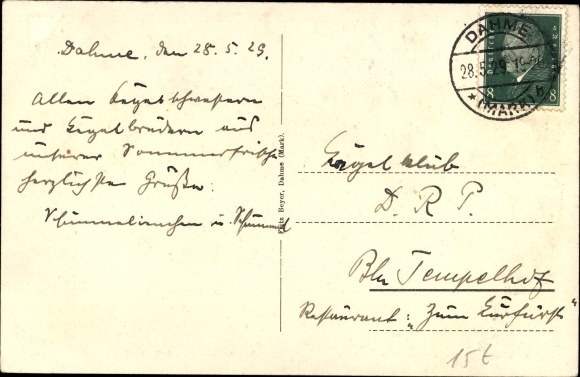 Dahme, den 28.5.29.
Allen Kegelschwestern
und Kegelbrüdern aus
unserer Sommerfrische
herzlichste Grüße.
Schimmelinchen u. Schimmel
Fritz Beyer, Dahme (Mark).
DAHME
28.5.29
* (MARK) b
8 8
Kegelklub
D. R. P.
Bln Tempelhof
Restaurant: „Zum Kurfürst“
15t